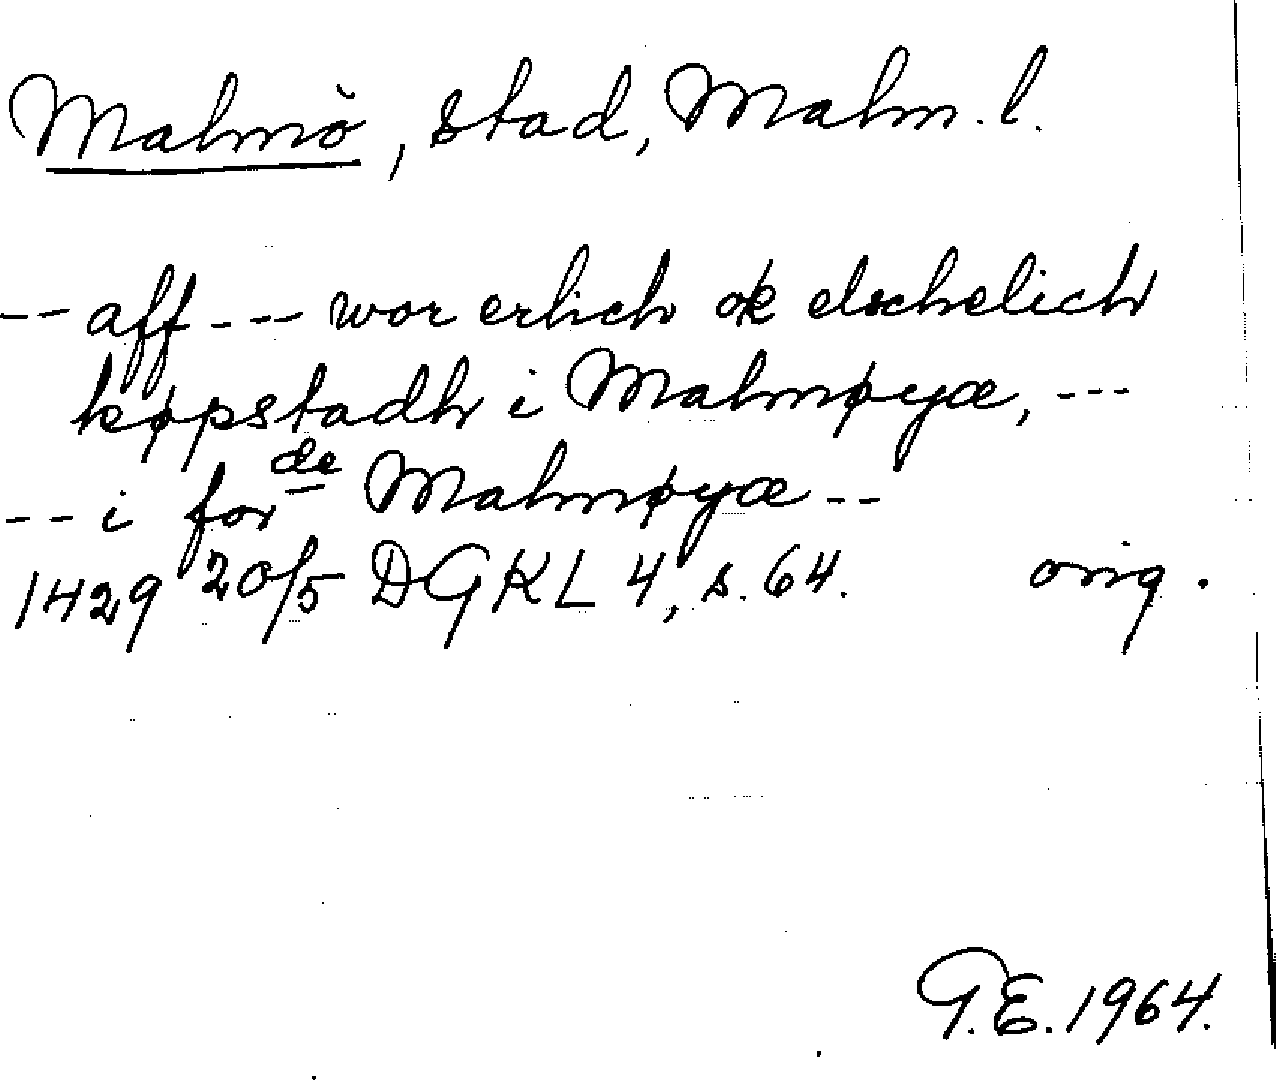 Malmö, stad, Malm. l.
-- aff --- wor erlich ok elschelich
køpstadh i Malmøyæ, ---
-- i for de Malmøyæ --
1429 20/5 DGKL 4, s. 64. orig.
G.E. 1964.